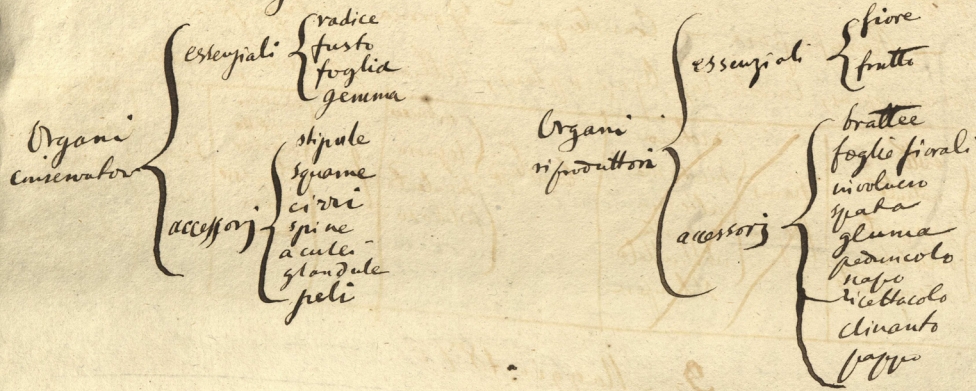 Organi
conservatori
essenziali
radice
fusto
foglia
gemma
accessorj
stipule
squame
cirri
spine
aculei
glandule
peli
Organi
riproduttori
essenziali
fiore
frutto
accessorj
brattee
foglie fiorali
involucro
spata
gluma
peduncolo
scapo
ricettacolo
clinanto
pappo